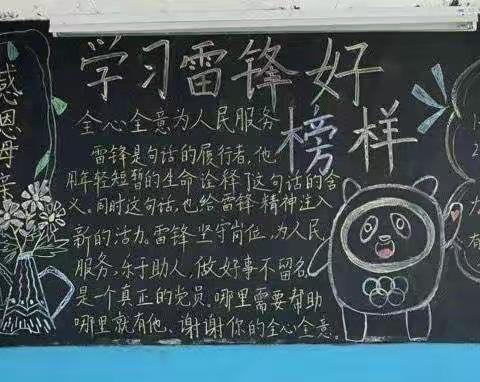 感恩母亲
学习雷锋好
榜样
全心全意为人民服务
雷锋是句话的履行者,他
用年轻短暂的生命诠释了这句话的含
义。同时这句话,也给雷锋精神注入
新的活力。雷锋坚守岗位,为人民
服务,乐于助人,做好事不留名,
是一个真正的党员,哪里需要帮助
哪里就有他、谢谢你的全心全意。